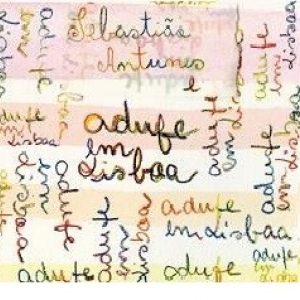 Sebastião
Antunes
e
adufe
em
Lisboa
adufe
em Lisboa
adufe
em
Lisboa
adufe
em
Lisboa
adufe
em
Lisboa
adufe
em Lisboa
adufe
adufe
adufe
em
Lisboa